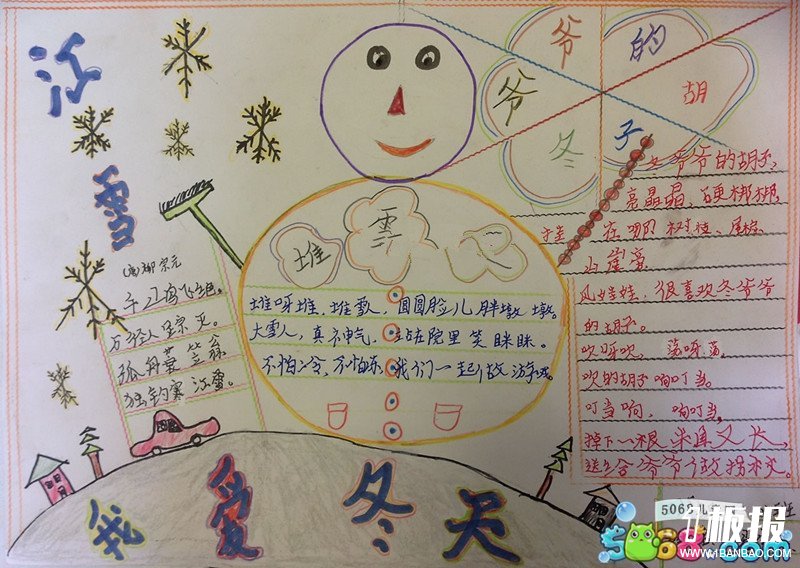 江
雪
(唐)柳宗元
千山鸟飞绝。
万径人踪灭。
孤舟蓑笠翁
独钓寒江雪。
堆
雪
人
堆呀堆,堆雪人,圆圆脸儿胖墩墩。
大雪人,真神气,站在院里笑眯眯。
不怕冷,不怕冻,我们一起做游戏。
冬爷爷的胡子
冬爷爷的胡子,
亮晶晶,硬梆梆
挂在哪 树枝、屋檐
山崖旁
风娃娃,很喜欢冬爷爷
的胡子。
吹呀吹,荡呀荡。
吹的胡子响叮当。
叮当响,响叮当,
掉下一根米直又长,
送给爷爷做拐杖。
我爱冬天
班
5068儿
1板报
WWW.1BANBAO.COM